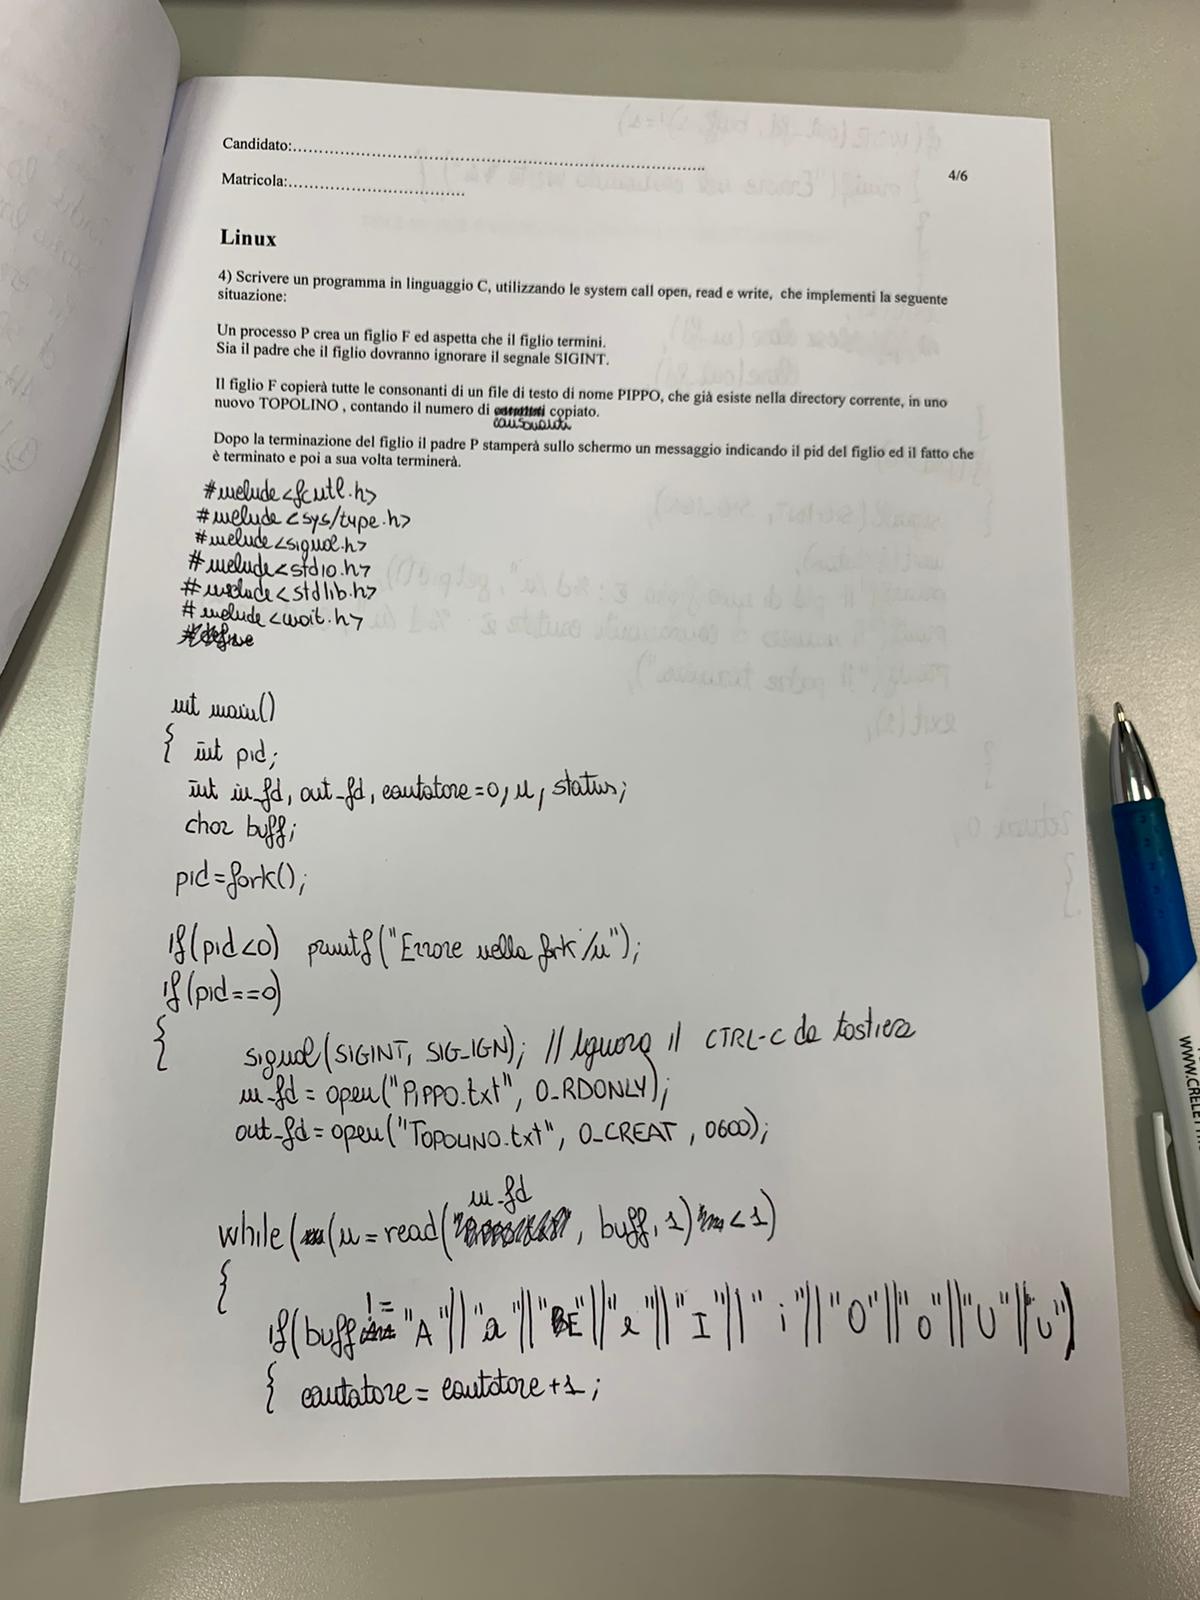 Candidato:................................................................
4/6
Matricola:..............................
Linux
4) Scrivere un programma in linguaggio C, utilizzando le system call open, read e write, che implementi la seguente
situazione:
Un processo P crea un figlio F ed aspetta che il figlio termini.
Sia il padre che il figlio dovranno ignorare il segnale SIGINT.
Il figlio F copierà tutte le consonanti di un file di testo di nome PIPPO, che già esiste nella directory corrente, in uno
nuovo TOPOLINO , contando il numero di copiato.
consonanti
Dopo la terminazione del figlio il padre P stamperà sullo schermo un messaggio indicando il pid del figlio ed il fatto che
è terminato e poi a sua volta terminerà.
#include<fcntl.h>
#include<sys/type.h>
#include<signal.h>
#include<stdio.h>
#include<stdlib.h>
#include<wait.h>
#define
int main()
{ int pid;
int in_fd, out_fd, contatore=0, n, status;
char buff;
pid=fork();
if(pid<0) printf("Errore nella fork /n");
if(pid==0)
{ signal(SIGINT, SIG_IGN); // Ignora il CTRL-C da tastiera
in_fd = open("PIPPO.txt", O_RDONLY);
out_fd = open("TOPOLINO.txt", O_CREAT, 0600);
in_fd
while((n=read( , buff, 1) < 1)
{
if(buff != "A"||"a"||"E"||"e"||"I"||"i"||"O"||"o"||"U"||"u")
{ contatore = contatore+1;
WWW.CRELET